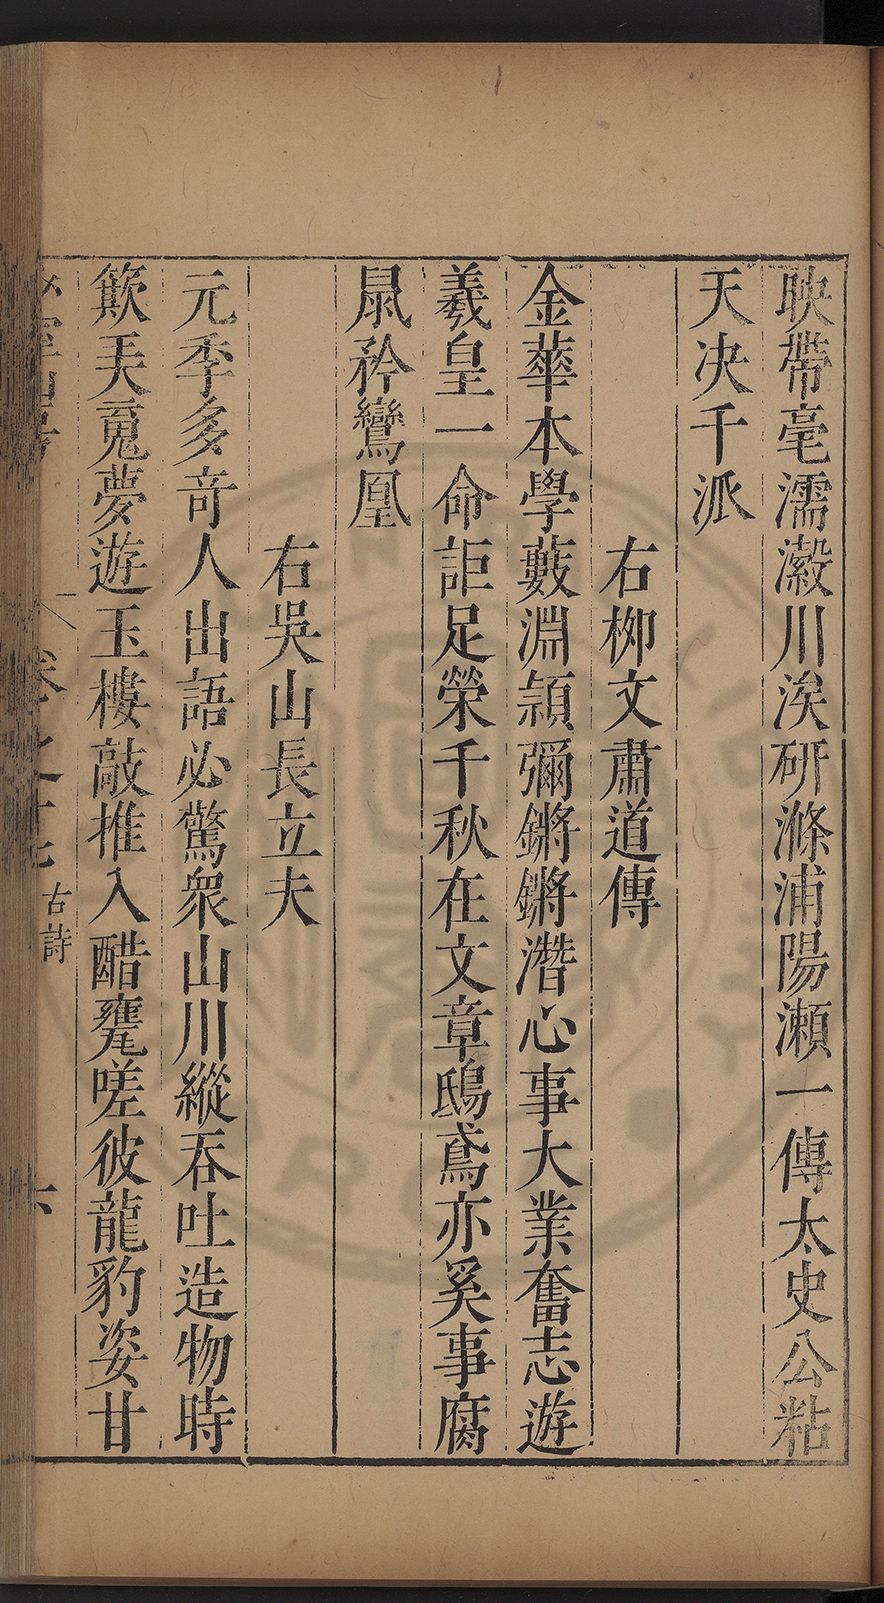 映帶毫濡瀫川涘研滌浦陽瀨一傳太史公粘
天决千派
右柳文肅道傳
金華本學藪淵頴彌鏘鏘潛心事大業奮志遊
羲皇一命詎足榮千秋在文章鴟鳶亦奚事腐
鼠矜鸞凰
右吳山長立夫
元季多奇人出語必驚衆山川縱吞吐造物時
欺天䰟夢遊玉樓敲推入醋甕嗟彼龍豹姿甘
卷之十七 古詩 六